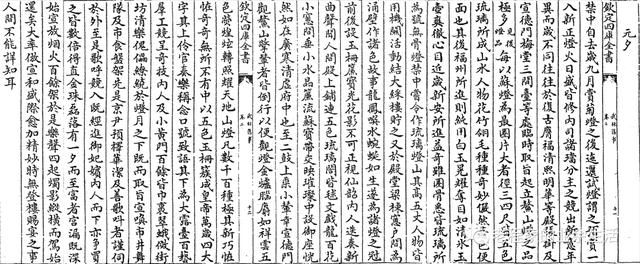 元夕
欽定四庫全書 武林舊事 卷二
禁中自去歲九月賞菊燈之後迤邐試燈謂之預賞一
入新正燈火日盛皆修內司諸璫分主之競出新意年
異而歲不同往往於復古膺福清燕明華等殿張掛及
宣德門梅堂三閒臺等處臨時取旨起立鰲山燈之品
極多見後燈品每以蘇燈為最圈片大者徑三四尺皆五色
琉璃所成山水人物花竹翎毛種種奇妙儼然著色便
面也其後福州所進則純用白玉晃耀奪目如清冰玉
壺爽徹心目近歲新安所進益奇雖圈骨悉皆琉璃所
為號無骨燈禁中嘗令作琉璃燈山其高五丈人物皆
用機關活動結大綵樓貯之又於殿堂梁棟窻戶間為
涌壁作諸色故事龍鳳噀水蜿蜒如生遂為諸燈之冠
欽定四庫全書 武林舊事 卷二
前後設玉柵簾寶光花影不可正視仙韶內人迭奏新
曲聲聞人間殿上鋪連五色琉璃閣皆毬文戲龍百花
小窻間垂小水晶簾流蘇寶帶交映璀璨中設御座恍
然如在廣寒清虛府中也至二鼓上乘小輦幸宣德門
觀鰲山擎輦者皆倒行以便觀燈金爐腦麝如祥雲五
色熒煌炫轉照耀天地山燈凡數千百種極其新巧怪
怪奇奇無所不有中以五色玉柵簇成皇帝萬歲四大
字其上伶官奏樂稱念口號致語其下為大露臺百藝
羣工競呈奇技內人及小黃門百餘皆巾裹翠蛾傚街
坊清樂傀儡繚繞於燈月之下既而取旨宣喚市井舞
隊及市食盤架先是京尹預擇華潔及善歌呌者謹伺
於外至是歌呼競入既經進御妃嬪內人而下亦爭買
之皆數倍得直金珠磊落有一夕而至富者宮漏既深
始宣放烟火百餘架於是樂聲四起燭影縱橫而駕始
還矣大率傚宣和盛際愈加精妙特無登樓賜宴之事
人間不能詳知耳